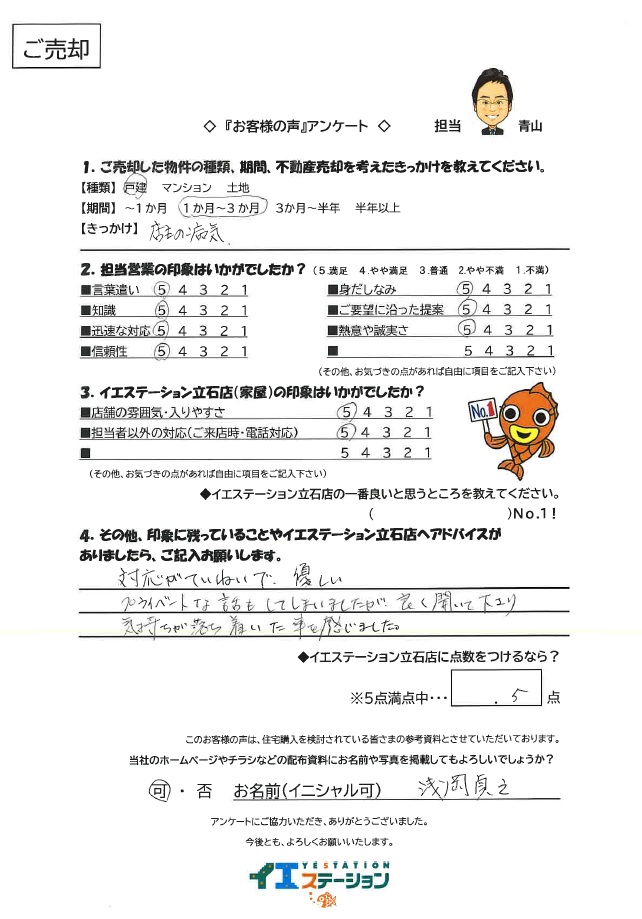 ご売却
◇ 『お客様の声』アンケート ◇ 担当 青山
1. ご売却した物件の種類、期間、不動産売却を考えたきっかけを教えてください。
【種類】 戸建 マンション 土地
【期間】 ～1か月 1か月～3か月 3か月～半年 半年以上
【きっかけ】 店主の病気
2. 担当営業の印象はいかがでしたか？ (5.満足 4.やや満足 3.普通 2.やや不満 1.不満)
■言葉遣い 5 4 3 2 1 ■身だしなみ 5 4 3 2 1
■知識 5 4 3 2 1 ■ご要望に沿った提案 5 4 3 2 1
■迅速な対応 5 4 3 2 1 ■熱意や誠実さ 5 4 3 2 1
■信頼性 5 4 3 2 1 ■ 5 4 3 2 1
(その他、お気づきの点があれば自由に項目をご記入下さい)
3. イエステーション立石店(家屋)の印象はいかがでしたか？
■店舗の雰囲気・入りやすさ 5 4 3 2 1
■担当者以外の対応(ご来店時・電話対応) 5 4 3 2 1
■ 5 4 3 2 1
No.1
(その他、お気づきの点があれば自由に項目をご記入下さい)
◆イエステーション立石店の一番良いと思うところを教えてください。
( )No.1!
4. その他、印象に残っていることやイエステーション立石店へアドバイスが
ありましたら、ご記入お願いします。
対応がていねいで、優しい
プライベントな話もしてしまいましたが、良く聞いて下さり
気持ちが落ち着いた事を感じました。
◆イエステーション立石店に点数をつけるなら？
※5点満点中・・・ .5 点
このお客様の声は、住宅購入を検討されている皆さまの参考資料とさせていただいております。
当社のホームページやチラシなどの配布資料にお名前や写真を掲載してもよろしいでしょうか？
可 ・ 否 お名前(イニシャル可) 浅岡貞之
アンケートにご協力いただき、ありがとうございました。
今後とも、よろしくお願いいたします。
YESTATION
イエステーション